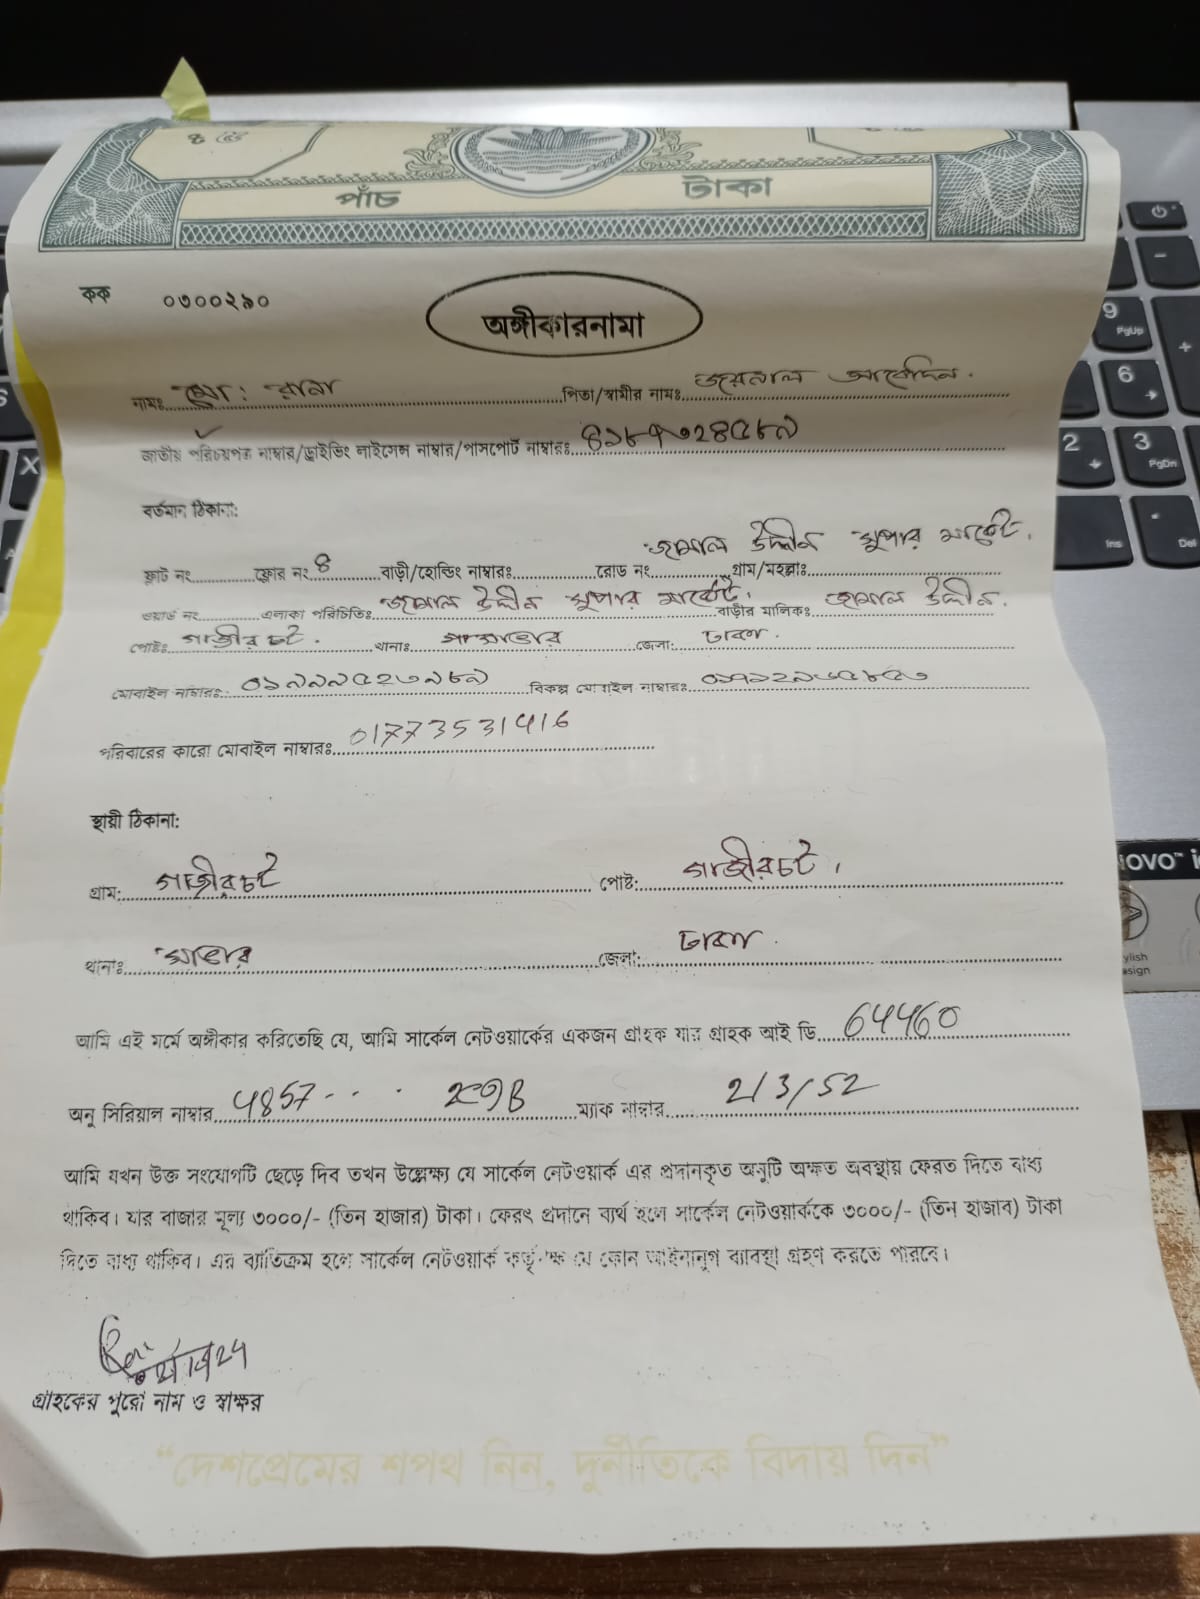 পাঁচ টাকা
কক ০৩০০২৯০
অঙ্গীকারনামা
নামঃ মো: রানা পিতা/স্বামীর নামঃ জয়নাল আবেদিন.
জাতীয় পরিচয়পত্র নাম্বার/ড্রাইভিং লাইসেন্স নাম্বার/পাসপোর্ট নাম্বারঃ
বর্তমান ঠিকানা:
জামাল উদ্দীন সুপার মার্কেট.
ফ্লাট নং ফ্লোর নং ৪ বাড়ী/হোল্ডিং নাম্বারঃ রোড নং গ্রাম/মহল্লাঃ
ওয়ার্ড নং এলাকা পরিচিতিঃ জামাল উদ্দীন সুপার মার্কেট. বাড়ীর মালিক: জামাল উদ্দীন.
পোষ্টঃ গাজীরচট. থানাঃ জেলা: ঢাকা.
মোবাইল নাম্বারঃ ০১৯৯৯৫২৩৯৮৯ বিকল্প মোবাইল নাম্বারঃ
পরিবারের কারো মোবাইল নাম্বারঃ 01773531416
স্থায়ী ঠিকানা:
গ্রাম: গাজীরচট পোষ্ট: গাজীরচট।
থানাঃ সাভার জেলা: ঢাকা.
আমি এই মর্মে অঙ্গীকার করিতেছি যে, আমি সার্কেল নেটওয়ার্কের একজন গ্রাহক যার গ্রাহক আই ডি 64460
অনু সিরিয়াল নাম্বার 4857 ম্যাক নাম্বার 2/3/52
আমি যখন উক্ত সংযোগটি ছেড়ে দিব তখন উল্লেক্ষ্য যে সার্কেল নেটওয়ার্ক এর প্রদানকৃত অনুটি অক্ষত অবস্থায় ফেরত দিতে বাধ্য
থাকিব। যার বাজার মূল্য ৩০০০/- (তিন হাজার) টাকা। ফেরৎ প্রদানে ব্যর্থ হলে সার্কেল নেটওয়ার্ককে ৩০০০/- (তিন হাজার) টাকা
দিতে বাধ্য থাকিব। এর ব্যাতিক্রম হলে সার্কেল নেটওয়ার্ক কর্তৃপক্ষ যে কোন আইনানুগ ব্যাবস্থা গ্রহণ করতে পারবে।
গ্রাহকের পুরো নাম ও স্বাক্ষর
“দেশপ্রেমের শপথ নিন, দুর্নীতিকে বিদায় দিন”